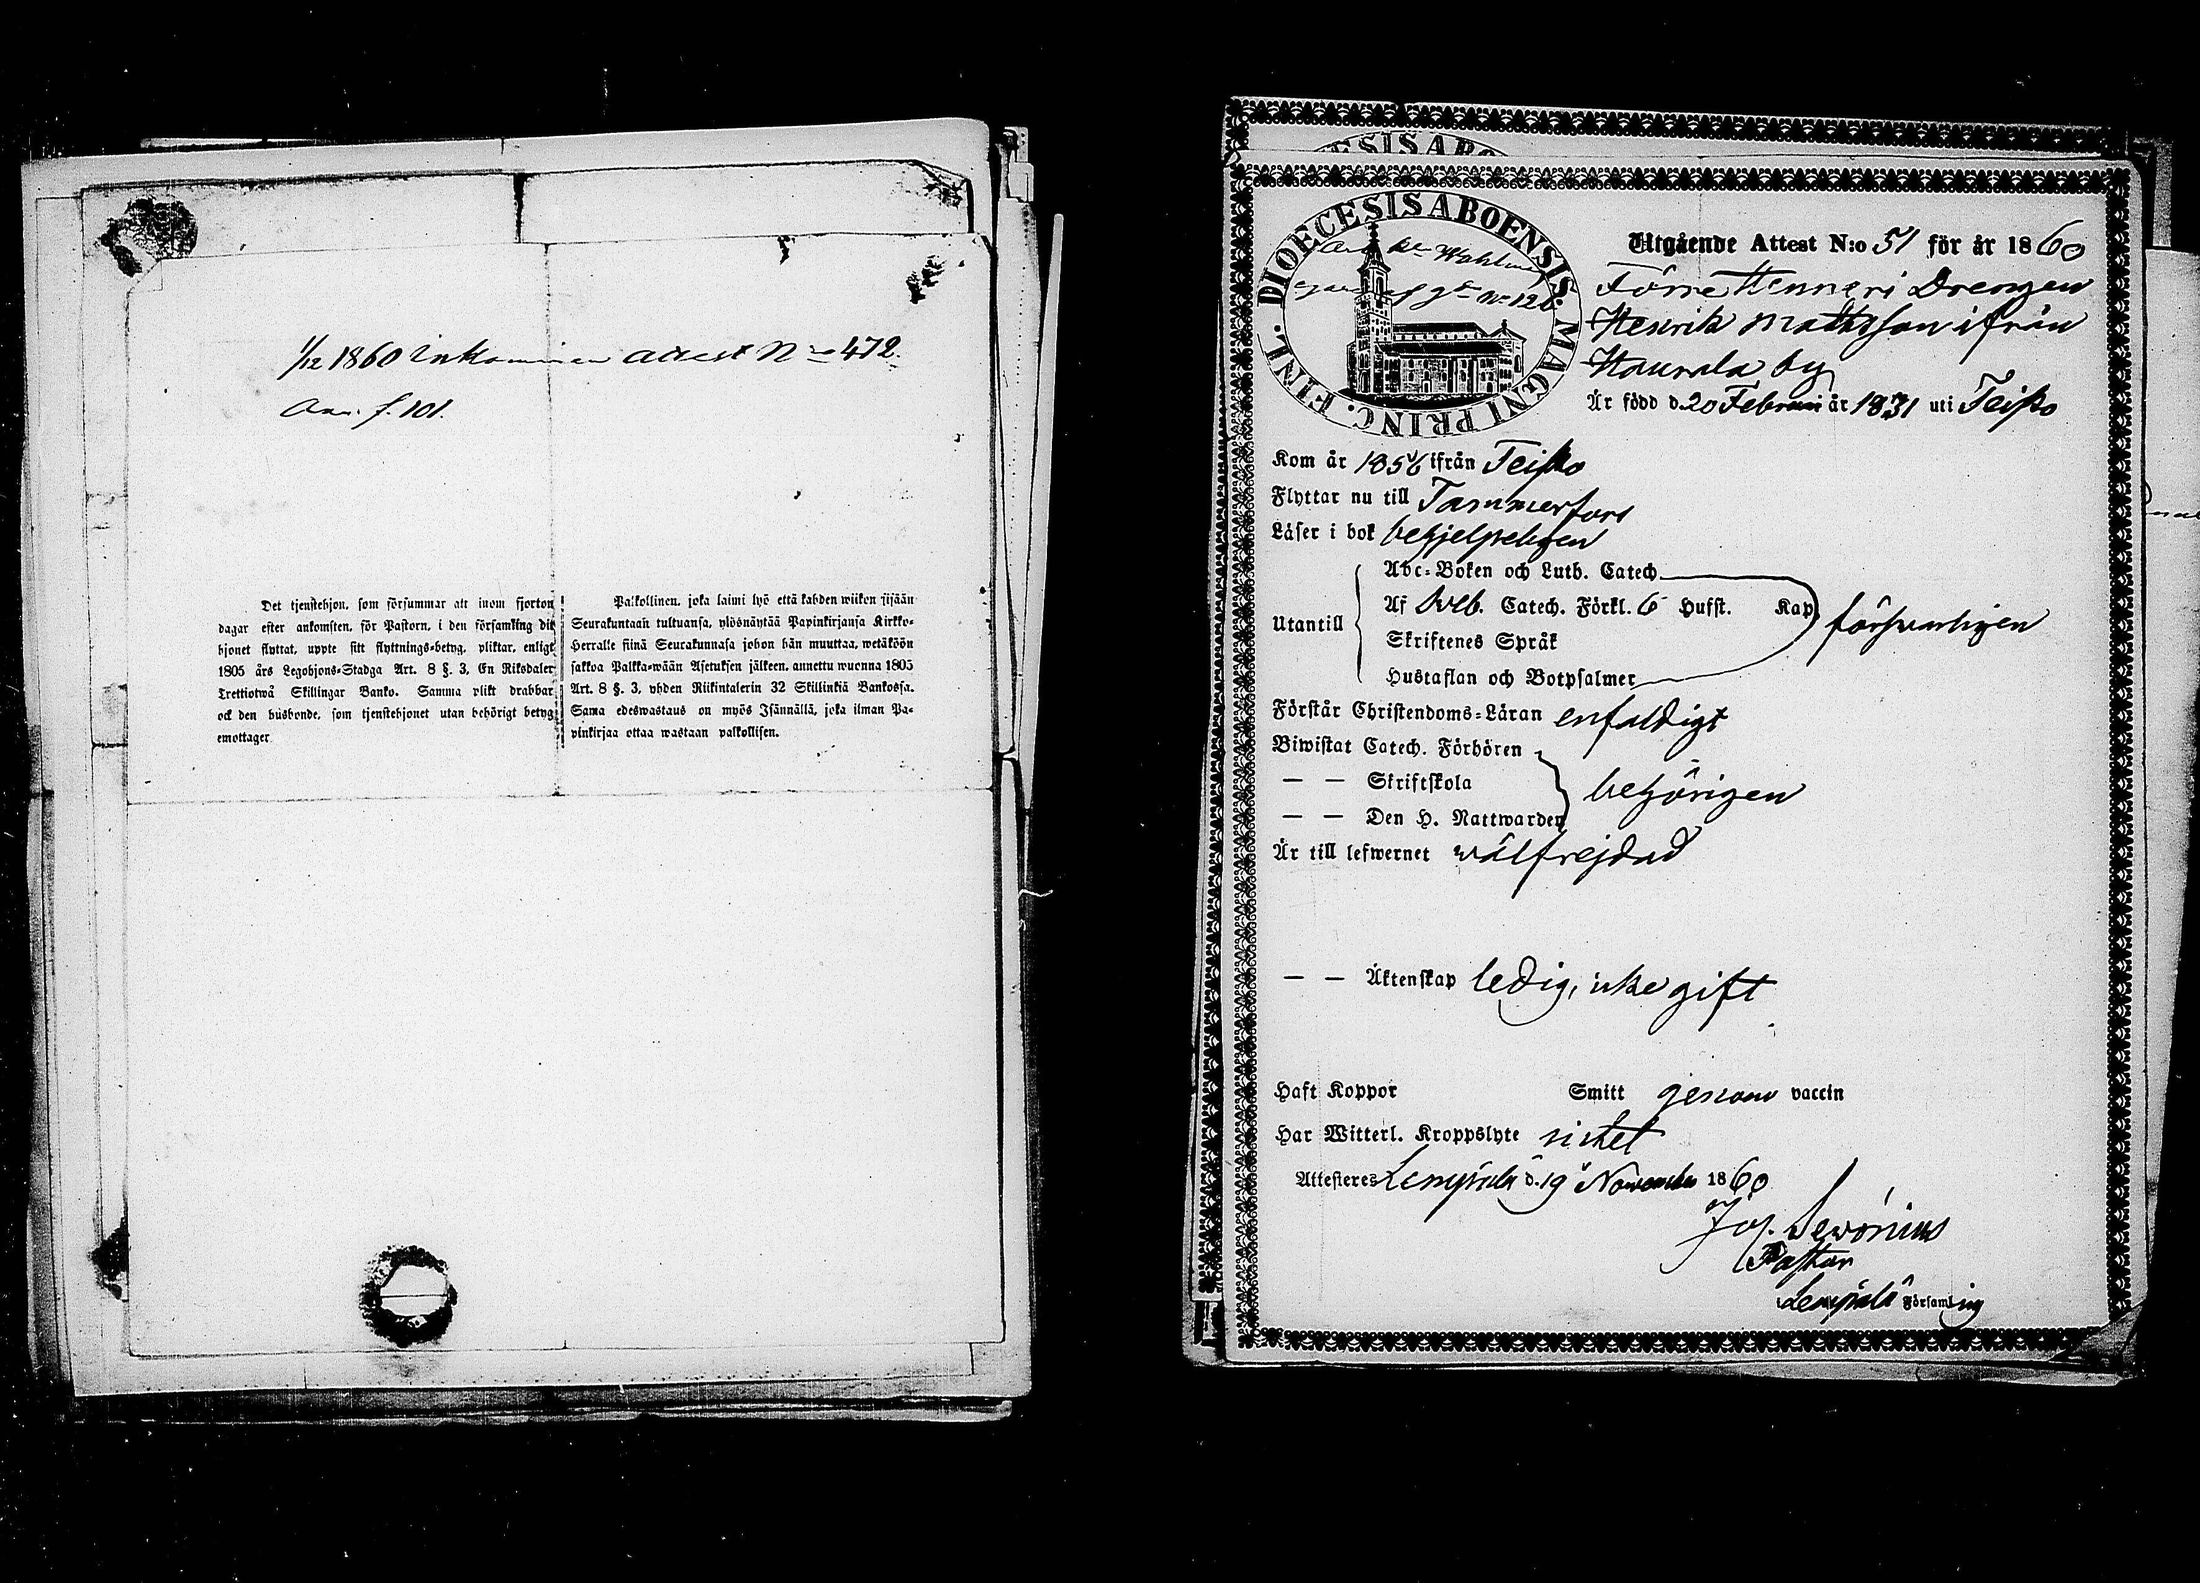 1/12 1860 Inkommen attest No 472.
Ann. f. 101.
Det tjenstehjon, som försummar att inom fjorton
dagar efter ankomsten, för Pastorn, i den församling dit
hjonet flyttat, uppte sitt flyttnings-betyg, pliktar, enligt
1805 års Legohjons-Stadga Art. 8 §. 3, En Riksdaler
Trettiotwå Skillingar Banko. Samma plikt drabbar
ock den husbonde, som tjenstehjonet utan behörigt betyg
emottager
Palkollinen, joka laimi lyö että kahden wiikon sisään
Seurakuntaan tultuansa, ylösnäyttää Papinkirjansa Kirkko-
Herralle siinä Seurakunnasa johon hän muuttaa, wetäköön
sakkoa Palkka-wään Asetuksen jälkeen, annettu wuonna 1805
Art. 8 §. 3, yhden Riikintalerin 32 Skillinkiä Bankossa.
Sama edeswastaus on myös Isännällä, joka ilman Pa-
pinkirjaa ottaa wastaan palkollisen.
ESIS ABO
DIOECESIS ABOENSIS. MAGNI PRINC. FINL.
No 126
Utgående Attest N:o 51 för år 1860
Förre Drengen
Henrik Mattsson ifrån
Haurala by
Är född d. 20 Februari år 1831 uti Teisko
Kom år 1856 ifrån Teisko
Flyttar nu till Tammerfors
Läser i bok behjelpeligen
Abc-Boken och Luth. Catech.
Utantill Af Sveb. Catech. Förkl. 6 Hufst. Kap. försvarligen
Skriftenes Språk
Hustaflan och Botpsalmer
Förstår Christendoms-Läran enfaldigt
Biwistat Catech. Förhören
— — Skriftskola behörigen
— — Den H. Nattwarden
Är till lefwernet wälfrejdad
— — Äktenskap ledig, icke gift
Haft Koppor Smitt genom vaccin
Har Witterl. Kroppslyte intet
Attesteres Lempäälä d. 19 November 1860
Jos. Sevonius
Pastor
i Lempäälä Församling